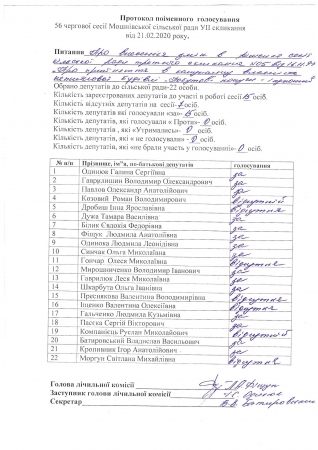 Протокол поіменного голосування
56 чергової сесії Мошнівської сільської ради VII скликання
від 21.02.2020 року.
Питання Про внесення змін в рішення сесії
сільської ради
Про прийняття в комунальну власність
Обрано депутатів до сільської ради-22 особи.
Кількість зареєстрованих депутатів до участі в роботі сесії 15 осіб.
Кількість відсутніх депутатів на сесії-7 осіб.
Кількість депутатів, які голосували «за»- 15 осіб.
Кількість депутатів, які голосували « Проти»- 0 осіб.
Кількість депутатів , які «Утримались»- 0 осіб.
Кількість депутатів, які « не голосували» - 0 осіб.
Кількість депутатів, які «не брали участь у голосуванні»- 0 осіб.
№ п/п Прізвище, ім"я, по-батькові депутатів голосування
1 Одинюк Галина Сергіївна за
2 Гаврилишин Володимир Олександрович за
3 Павлов Олександр Анатолійович за
4 Козовий Роман Володимирович відсутній
5 Дробиш Інна Ярославівна відсутня
6 Дужа Тамара Василівна за
7 Білик Євдокія Федорівна за
8 Фіщук Людмила Анатоліївна за
9 Одинока Людмила Леонідівна за
10 Сівчак Ольга Миколаївна за
11 Гончар Олеся Миколаївна відсутня
12 Мирошниченко Володимир Іванович за
13 Гаврилюк Леся Миколаївна за
14 Шкарбута Ольга Іванівна за
15 Преснякова Валентина Володимирівна відсутня
16 Іщенко Валентина Олексіївна відсутня
17 Гальченко Людмила Кузьмівна за
18 Пасєка Сергій Вікторович за
19 Компанієць Руслан Миколайович відсутній
20 Батировський Владіслав Васильович за
21 Кропивник Ігор Анатолійович за
22 Моргун Світлана Михайлівна відсутня
Голова лічильної комісії Л.А. Фіщук
Заступник голови лічильної комісії
Секретар В.В. Батировський